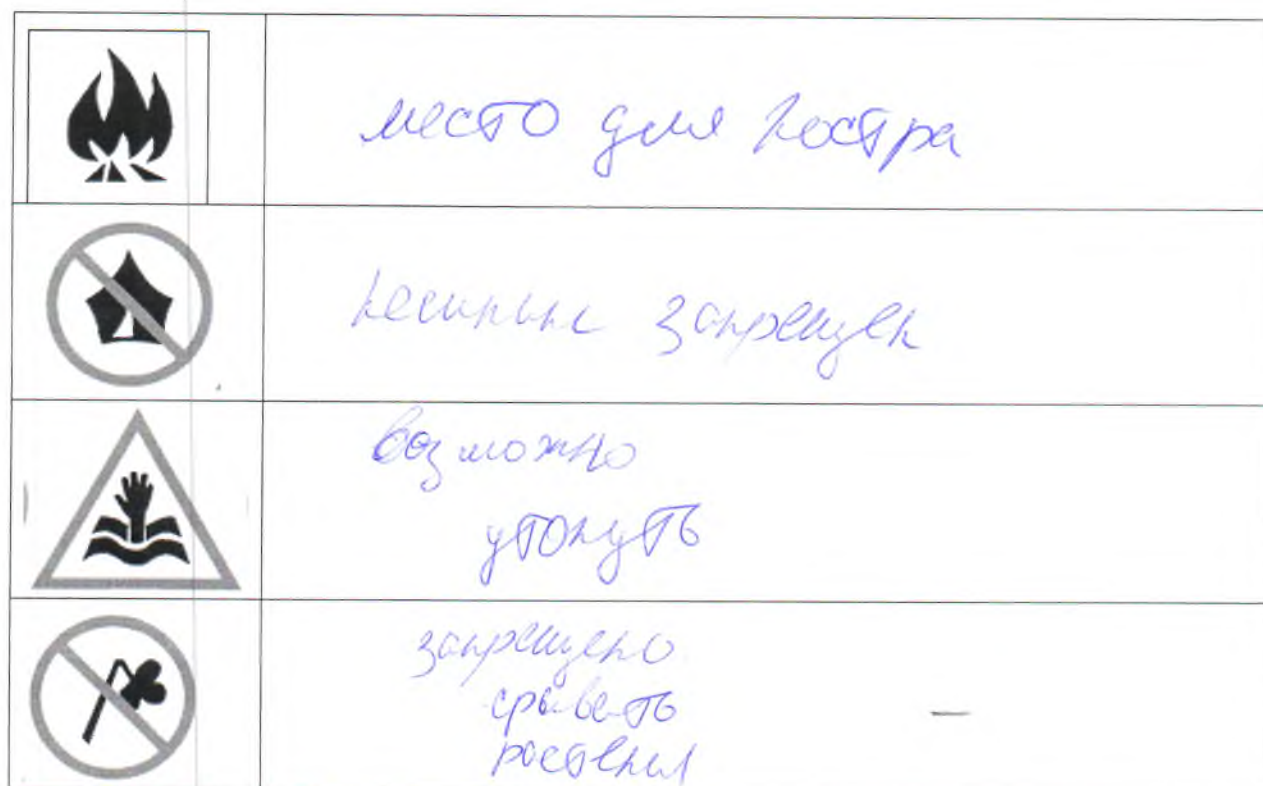 место для костра
кемпинг запрещен
возможно
утонуть
запрещено
срывать
растения